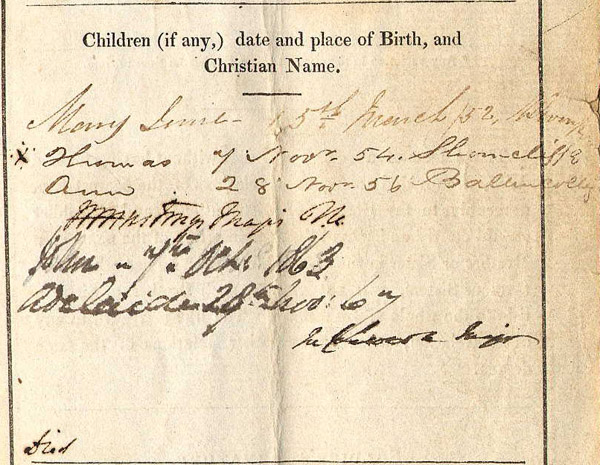 Children (if any,) date and place of Birth, and
Christian Name.
Mary 15th March 52,
x Thomas 7 Novr. 54. Shorncliffe
Ann 28 Novr. 56 Ballincollig
John 7th Oct: 1863
Adelaide 28th Nov: 67
Died